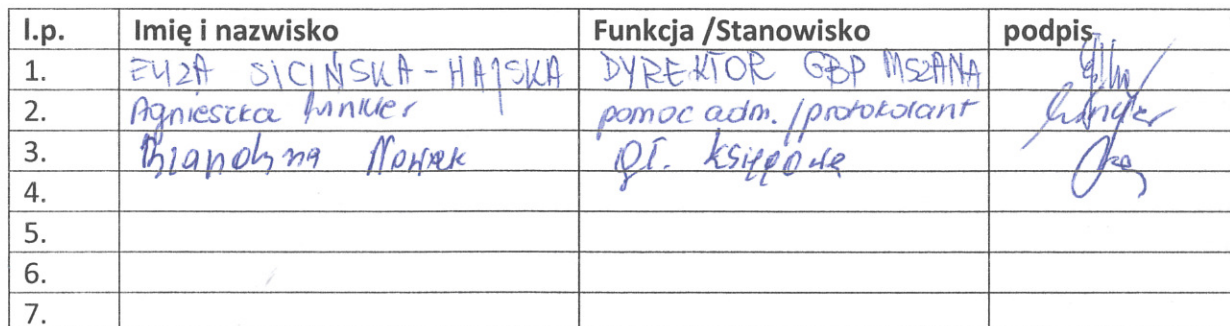 l.p. Imię i nazwisko Funkcja /Stanowisko podpis
1. ELIZA SICIŃSKA-HAJSKA DYREKTOR GBP MSZANA
2. Agnieszka pomoc adm. /protokolant
3. Blandyna Nowak gł. księgowa
4.
5.
6.
7.